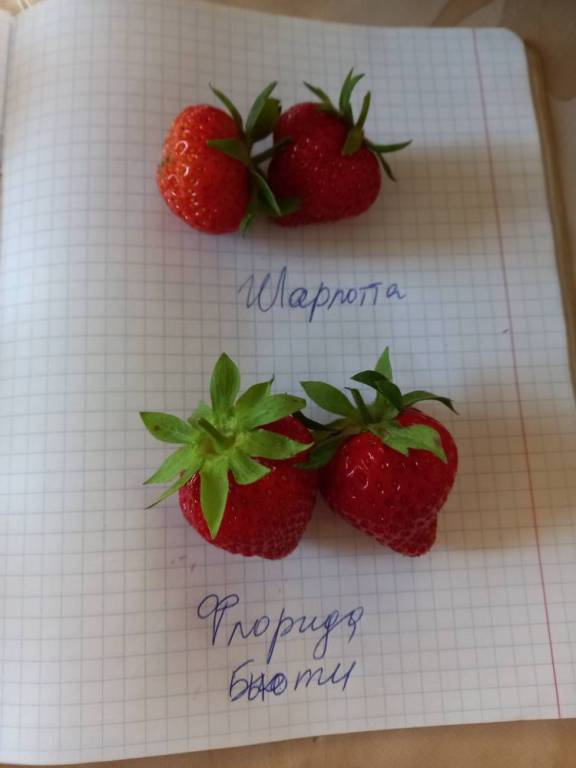 Шарлотта
Флорида
Бьюти